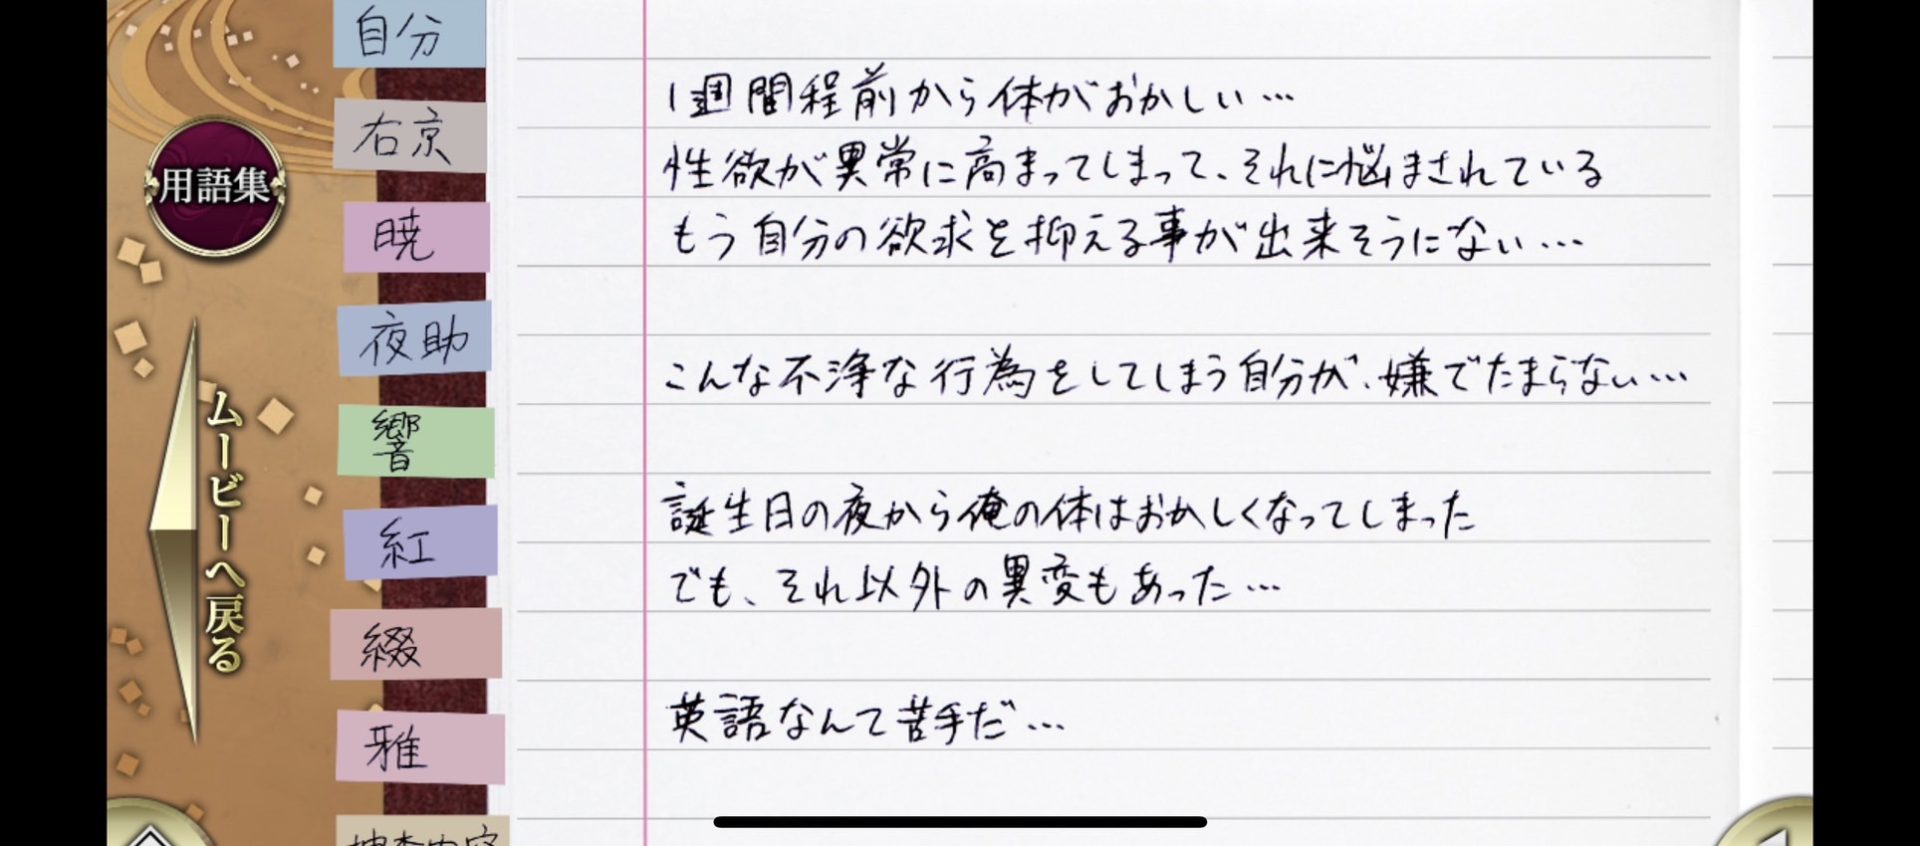 自分
右京
暁
夜助
響
紅
綴
雅
捜査内容
用語集
ムービーへ戻る
1週間程前から体がおかしい…
性欲が異常に高まってしまって、それに悩まされている
もう自分の欲求を抑える事が出来そうにない…
こんな不浄な行為をしてしまう自分が、嫌でたまらない…
誕生日の夜から俺の体はおかしくなってしまった
でも、それ以外の異変もあった…
英語なんて苦手だ…